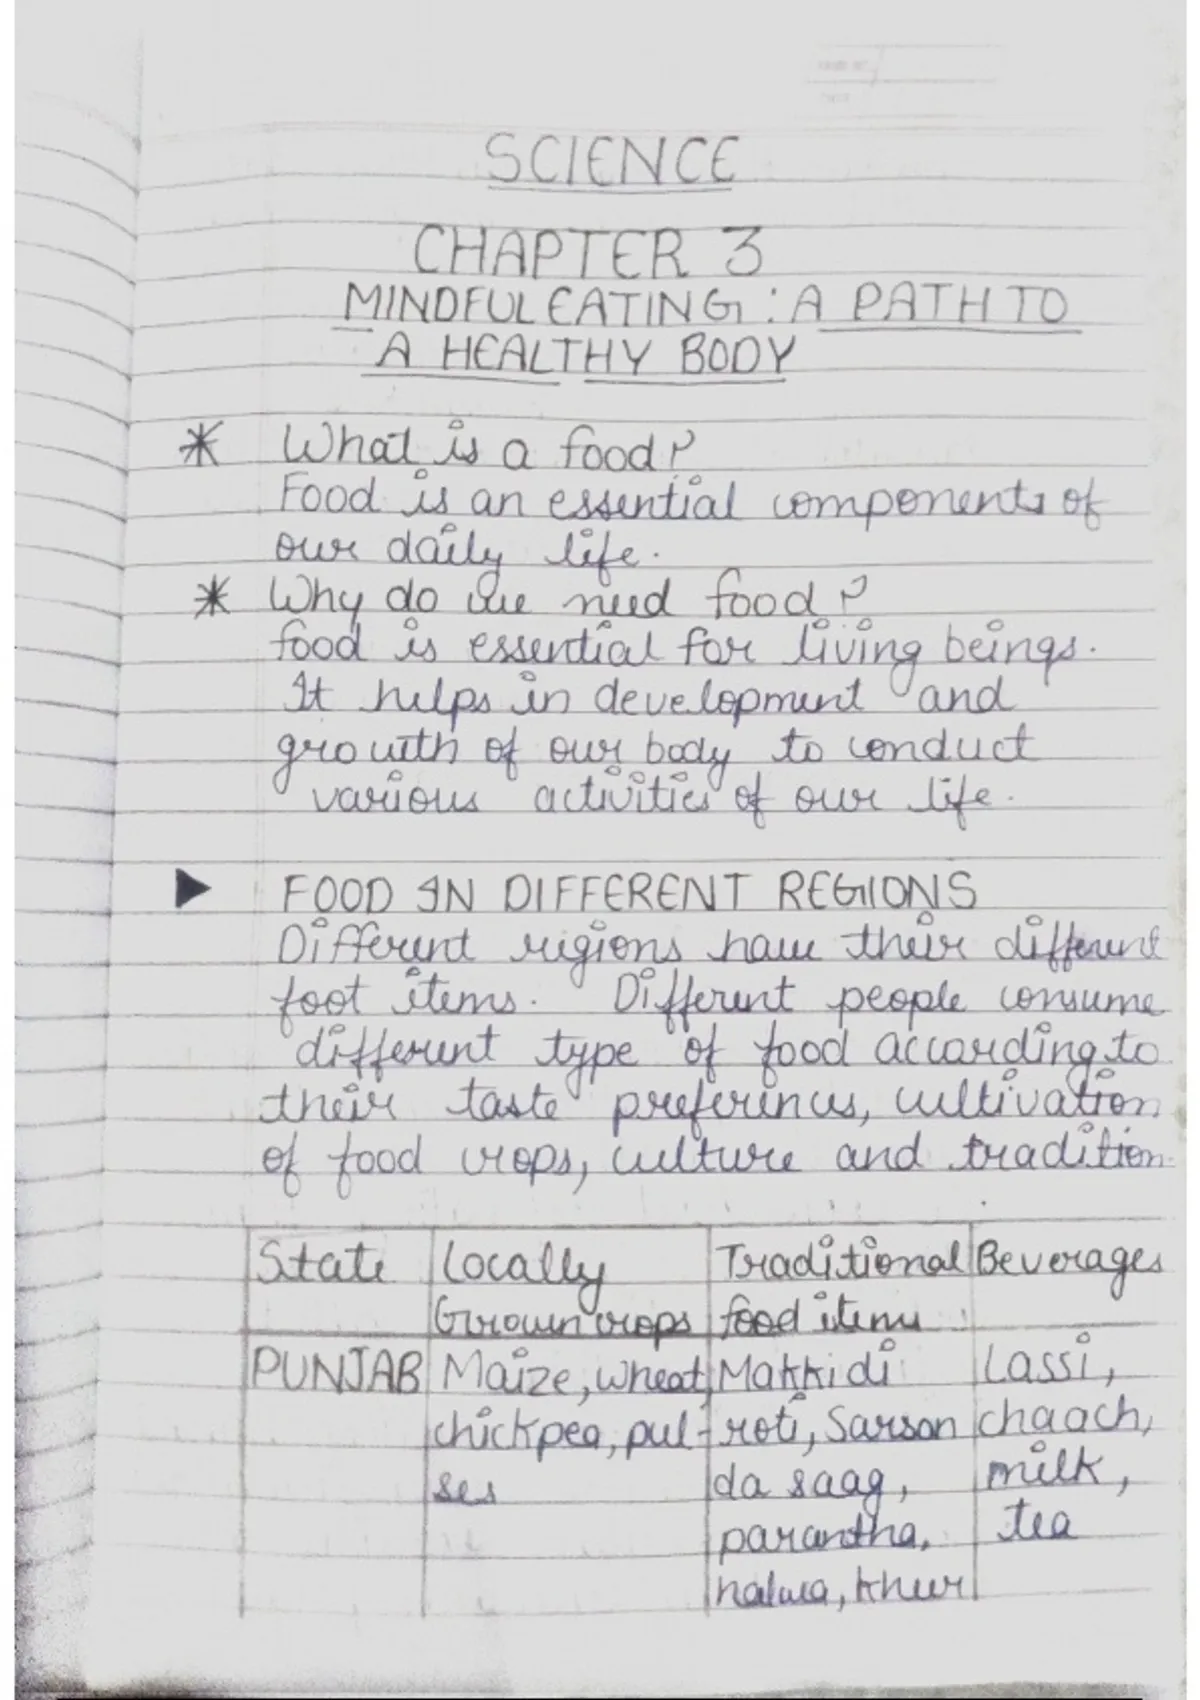 SCIENCE
CHAPTER 3
MINDFUL EATING : A PATH TO
A HEALTHY BODY
* What is a food?
Food is an essential components of
our daily life.
* Why do we need food?
food is essential for living beings.
It helps in development and
growth of our body to conduct
various activities of our life.
▶ FOOD IN DIFFERENT REGIONS
Different regions have their different
foot items. Different people consume
different type of food according to
their taste preferences, cultivation
of food crops, culture and tradition.
State | Locally | Traditional | Beverages
Grown crops | food items
PUNJAB | Maize, wheat, | Makki di | Lassi,
chickpea, pul- | roti, Sarson | chaach,
ses | da saag, | milk,
parantha, | tea
halwa, kheer